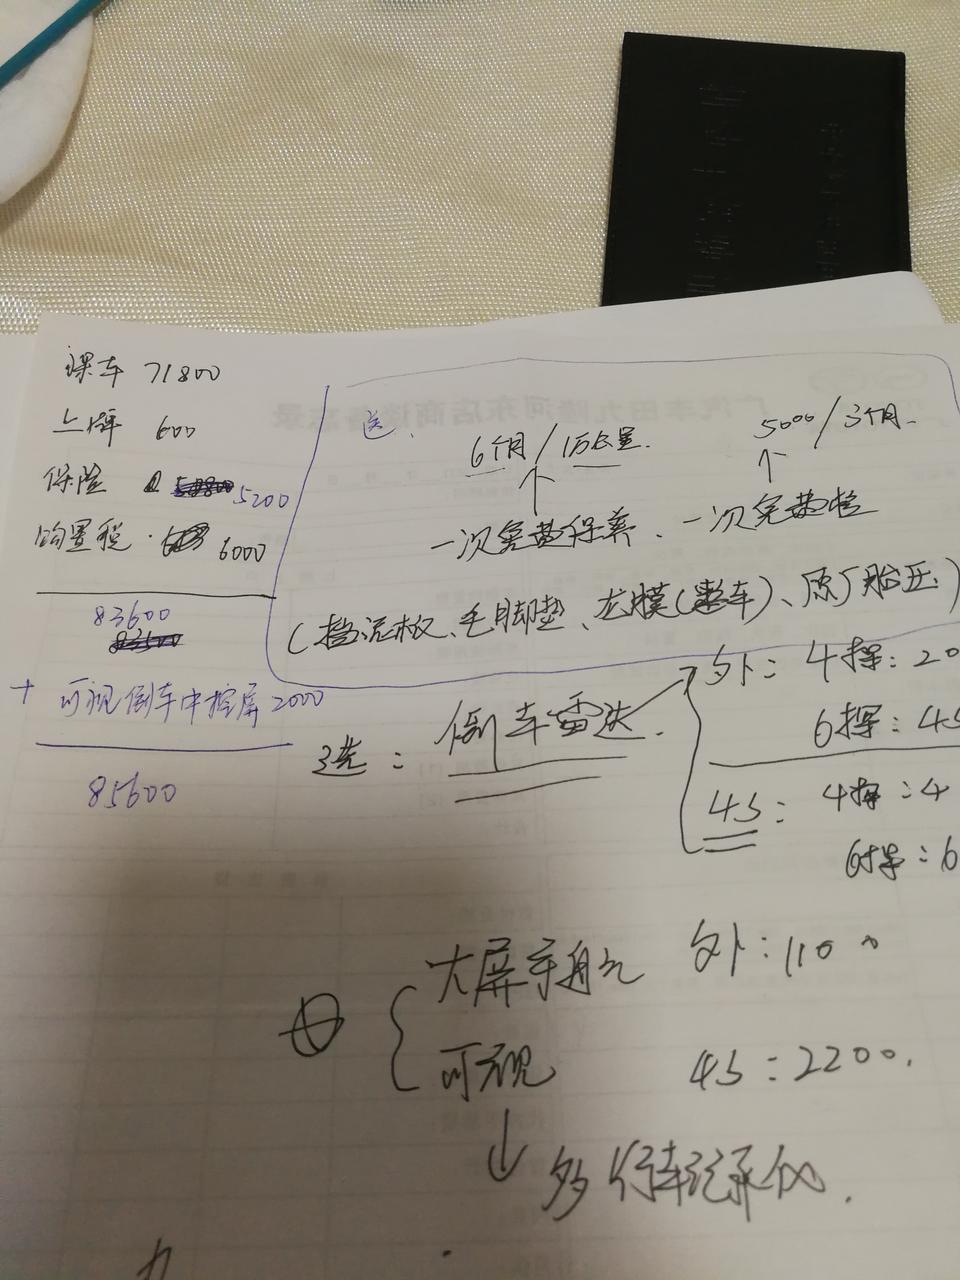 裸车 71800
上牌 600
保险 5200
购置税. 6000
83600
+ 可视倒车中控屏 2000
85600
送.
6个月/1万公里.
5000/3个月.
一次免费保养、一次免费检
(挡泥板、毛脚垫、龙膜(整车)、原厂胎压)
选: 倒车雷达.
外: 4探: 20
6探: 45
4S: 4探: 4
6探: 6
大屏导航 外: 1100
可视 4S: 2200.
↓
多行车记录仪.